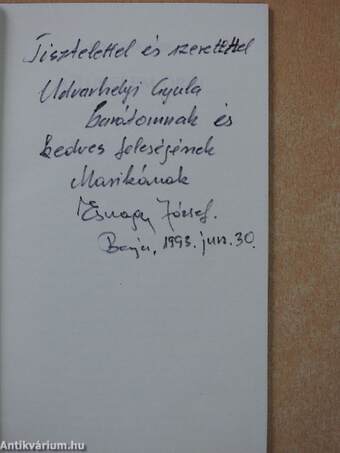 Tisztelettel és szeretettel
Udvarhelyi Gyula
barátomnak és
kedves feleségének
Marikának
Esnagy József.
Baja, 1993. jun. 30.
Antikvárium.hu